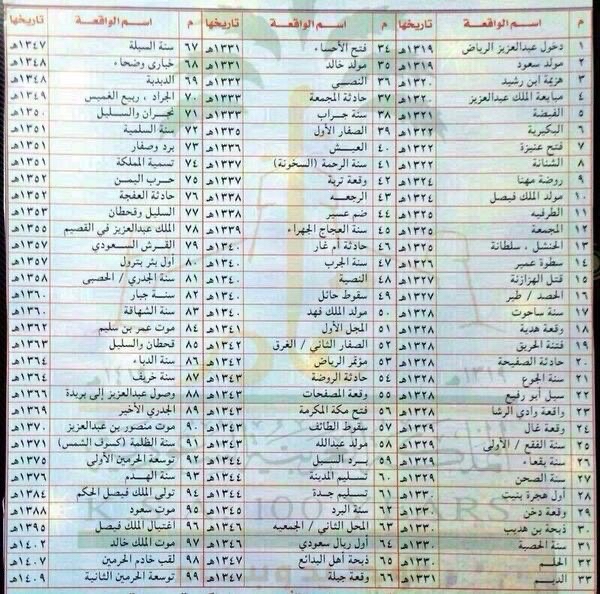 م اسم الواقعة تاريخها م اسم الواقعة تاريخها م اسم الواقعة تاريخها
١ دخول عبدالعزيز الرياض ١٣١٩هـ ٣٤ فتح الأحساء ١٣٣١هـ ٦٧ سنة السبلة ١٣٤٧هـ
٢ مولد سعود ١٣١٩هـ ٣٥ مولد خالد ١٣٣١هـ ٦٨ خبارى وضحاء ١٣٤٨هـ
٣ هزيمة ابن رشيد ١٣٢٠هـ ٣٦ النصبي ١٣٣٢هـ ٦٩ الدبدبة ١٣٤٨هـ
٤ مبايعة الملك عبدالعزيز ١٣٢٠هـ ٣٧ حادثة المجمعة ١٣٣٣هـ ٧٠ الجراد ، ربيع الغميس ١٣٤٩هـ
٥ الفيضة ١٣٢١هـ ٣٨ سنة جراب ١٣٣٣هـ ٧١ نجران والسليل ١٣٥٠هـ
٦ البكيرية ١٣٢٢هـ ٣٩ الصفار الأول ١٣٣٥هـ ٧٢ سنة السلمية ١٣٥١هـ
٧ فتح عنيزة ١٣٢٢هـ ٤٠ العيـش ١٣٣٦هـ ٧٣ برد وصفار ١٣٥١هـ
٨ الشنانة ١٣٢٢هـ ٤١ سنة الرحمة (السخونة) ١٣٣٧هـ ٧٤ تسمية المملكة ١٣٥١هـ
٩ روضة مهنا ١٣٢٤هـ ٤٢ وقعة تربة ١٣٣٧هـ ٧٥ حرب اليمن ١٣٥٢هـ
١٠ مولد الملك فيصل ١٣٢٤هـ ٤٣ الرجعه ١٣٣٨هـ ٧٦ حادثة العفجة ١٣٥٢هـ
١١ الطرفيه ١٣٢٥هـ ٤٤ ضم عسير ١٣٣٨هـ ٧٧ السليل وقحطان ١٣٥٣هـ
١٢ المجمعة ١٣٢٥هـ ٤٥ سنة العجاج الجهراء ١٣٣٩هـ ٧٨ الملك عبدالعزيز في القصيم ١٣٥٥هـ
١٣ الحنشل ، سلطانة ١٣٢٦هـ ٤٦ حادثة أم غار ١٣٤٠هـ ٧٩ القرش السعودي ١٣٥٧هـ
١٤ سطوة عمير ١٣٢٦هـ ٤٧ سنة الجرب ١٣٤٠هـ ٨٠ أول بئر بترول ١٣٥٧هـ
١٥ قتل الهزازنة ١٣٢٧هـ ٤٨ النصية ١٣٤٠هـ ٨١ سنة الجدري / الحصبى ١٣٥٨هـ
١٦ الحصد / طبر ١٣٢٧هـ ٤٩ سقوط حائل ١٣٤٠هـ ٨٢ سنة جبار ١٣٦٠هـ
١٧ سنة ساحوت ١٣٢٨هـ ٥٠ مولد الملك فهد ١٣٤٠هـ ٨٣ سنة الشهاقة ١٣٦٠هـ
١٨ وقعة هدية ١٣٢٨هـ ٥١ المجل الأول ١٣٤١هـ ٨٤ موت عمر بن سليم ١٣٦٢هـ
١٩ فتنة الحريق ١٣٢٨هـ ٥٢ الصفار الثاني / الغرق ١٣٤٢هـ ٨٥ قحطان والسليل ١٣٦٣هـ
٢٠ حادثة الصفيحة ١٣٢٨هـ ٥٣ مؤتمر الرياض ١٣٤٢هـ ٨٦ سنة الدباء ١٣٦٤هـ
٢١ سنة الجوع ١٣٢٨هـ ٥٤ حادثة الروضة ١٣٤٣هـ ٨٧ سنة خريف ١٣٦٤هـ
٢٢ سيل أبو رفيع ١٣٢٨هـ ٥٥ وقعة المصفحات ١٣٤٣هـ ٨٨ وصول عبدالعزيز إلى بريدة ١٣٦٦هـ
٢٣ واقعة وادي الرشا ١٣٢٨هـ ٥٦ فتح مكة المكرمة ١٣٤٣هـ ٨٩ الجدري الأخير ١٣٦٩هـ
٢٤ واقعة غال ١٣٢٩هـ ٥٧ سقوط الطائف ١٣٤٣هـ ٩٠ موت منصور بن عبدالعزيز ١٣٧٠هـ
٢٥ سنة الفقع / الأولى ١٣٢٩هـ ٥٨ مولد عبدالله ١٣٤٣هـ ٩١ سنة الظلمة (كسوف الشمس) ١٣٧١هـ
٢٦ سنة بقعاء ١٣٢٩هـ ٥٩ برد السيل ١٣٤٤هـ ٩٢ توسعة الحرمين الأولى ١٣٧٥هـ
٢٧ سنة الصخن ١٣٢٩هـ ٦٠ تسليم المدينة ١٣٤٤هـ ٩٣ سنة الهدم ١٣٧٦هـ
٢٨ أول هجرة بنيت ١٣٣٠هـ ٦١ تسليم جدة ١٣٤٤هـ ٩٤ تولى الملك فيصل الحكم ١٣٨٤هـ
٢٩ وقعة دخن ١٣٣٠هـ ٦٢ سنة البرد ١٣٤٥هـ ٩٥ موت سعود ١٣٨٨هـ
٣٠ ذبحة بن هديب ١٣٣٠هـ ٦٣ المحل الثاني / الجمعيه ١٣٤٦هـ ٩٦ اغتيال الملك فيصل ١٣٩٥هـ
٣١ سنة الحصبة ١٣٣٠هـ ٦٤ أول ريال سعودي ١٣٤٦هـ ٩٧ موت الملك خالد ١٤٠٢هـ
٣٢ الحلم ١٣٣٠هـ ٦٥ ذبحة أهل البدائع ١٣٤٧هـ ٩٨ لقب خادم الحرمين ١٤٠٧هـ
٣٣ الديـم ١٣٣١هـ ٦٦ وقعة جبلة ١٣٤٧هـ ٩٩ توسعة الحرمين الثانية ١٤٠٩هـ